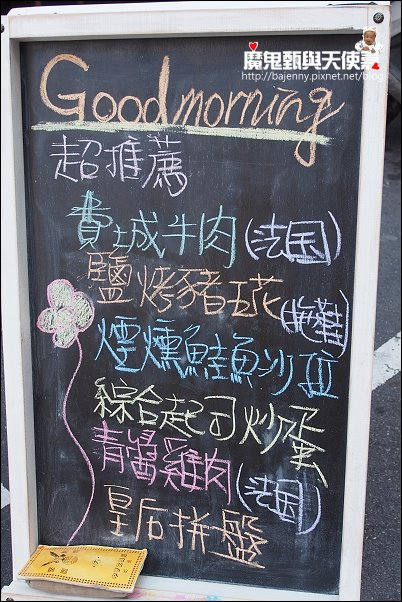 魔鬼甄與天使嘉
http://bajenny.pixnet.net/blog
Good morning
超推薦
費城牛肉(法国)
鹽烤豬五花(拖鞋)
煙燻鮭魚沙拉
綜合起司炒蛋
青醬雞肉(法国)
皇后拼盤